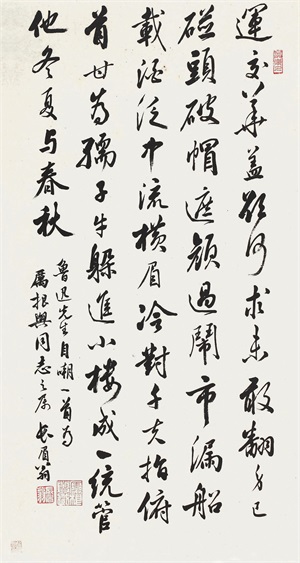 運交華蓋欲何求未敢翻身已
碰頭破帽遮顏過鬧市漏船
載酒泛中流橫眉冷對千夫指俯
首甘為孺子牛躲進小樓成一統管
他冬夏与春秋
魯迅先生自嘲一首為
厲根興同志之屬 長眉翁